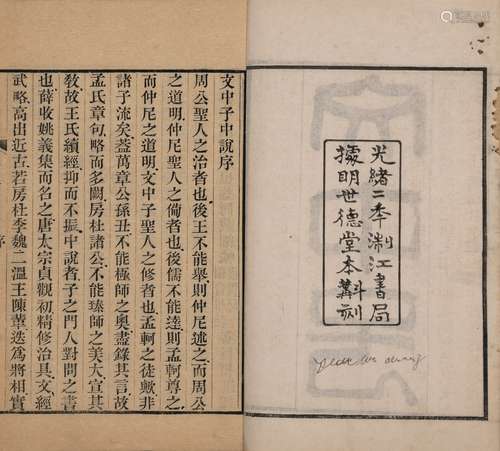 光緒二季淛江書局
據明世德堂本斠刻
文中子中說序
周公聖人之治者也後王不能舉則仲尼述之而周公
之道明仲尼聖人之備者也後儒不能達則孟軻尊之
而仲尼之道明文中子聖人之修者也孟軻之徒歟非
諸子流矣葢萬章公孫丑不能極師之奧盡錄其言故
孟氏章句略而多闕房杜諸公不能臻師之美大宣其
敎故王氏續經抑而不振中說者子之門人對問之書
也薛收姚義集而名之唐太宗貞觀初精修治具文經
武略高出近古若房杜李魏二溫王陳輩迭爲將相實
序